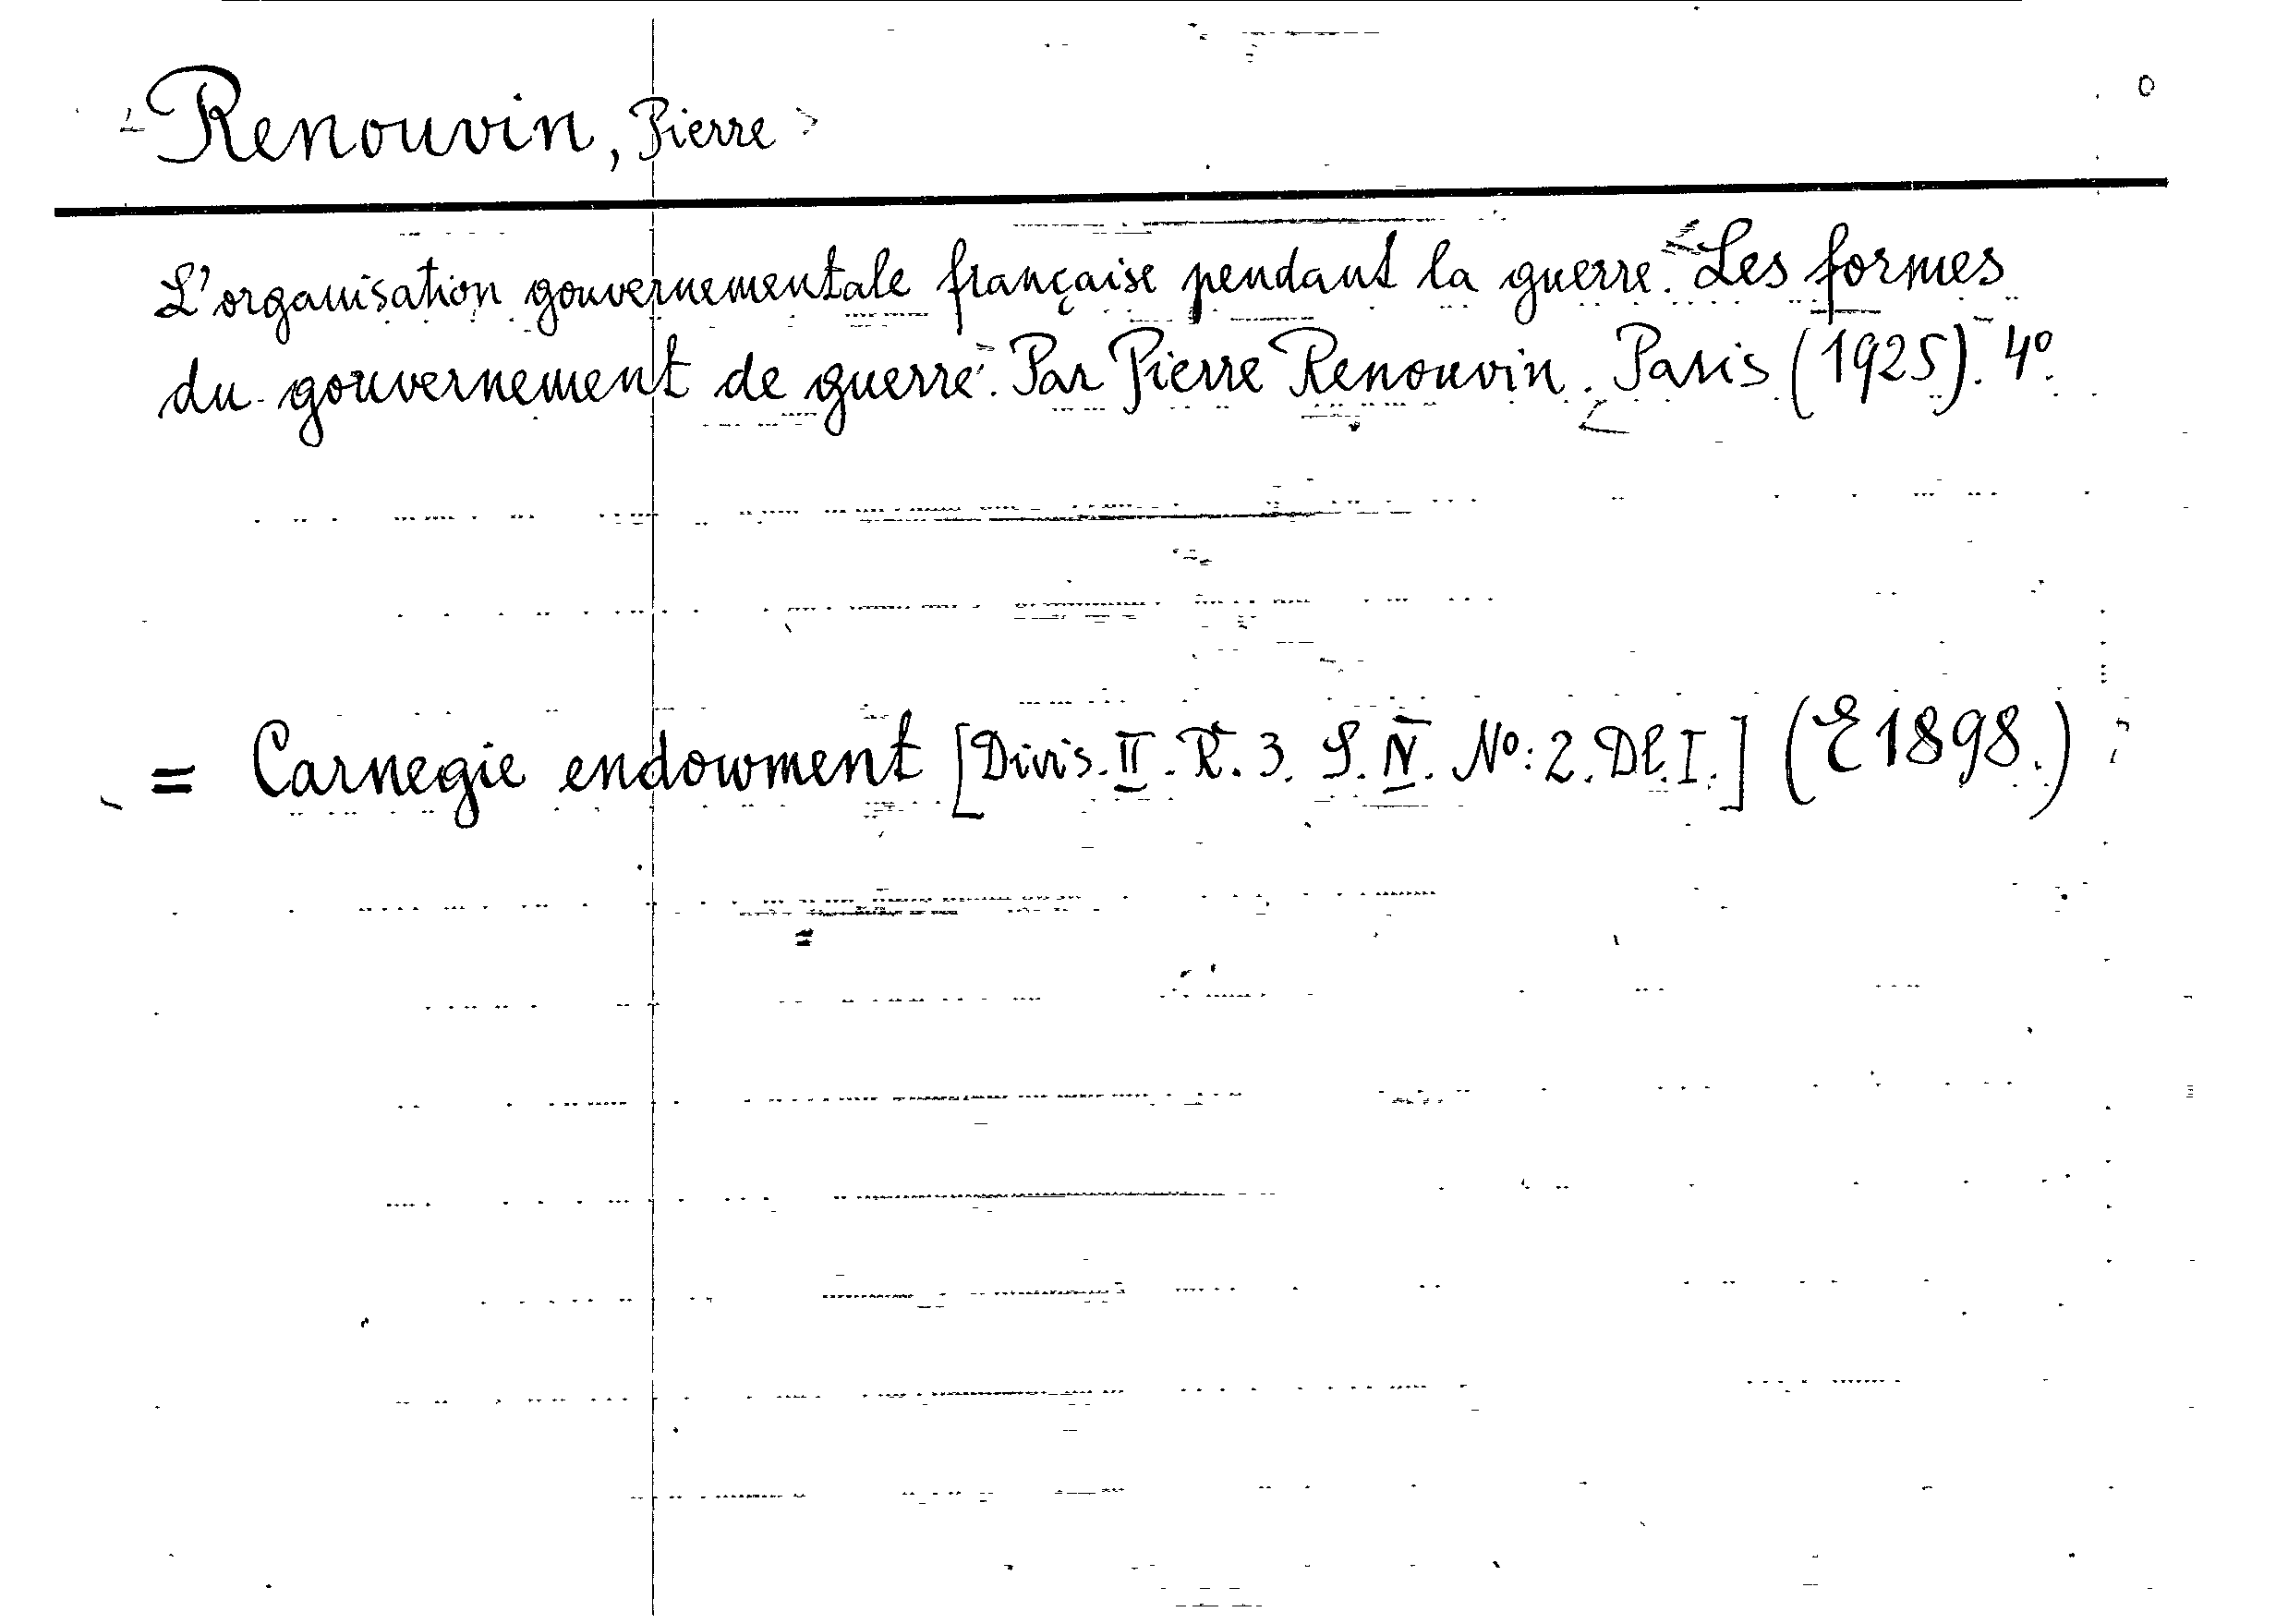 Renouvin, Pierre
L'organisation gouvernementale française pendant la guerre. Les formes
du gouvernement de guerre. Par Pierre Renouvin. Paris (1925). 4º.
= Carnegie endowment [Divis. II. R. 3. S. IV. Nº: 2. Dl. I.] (E 1898.)